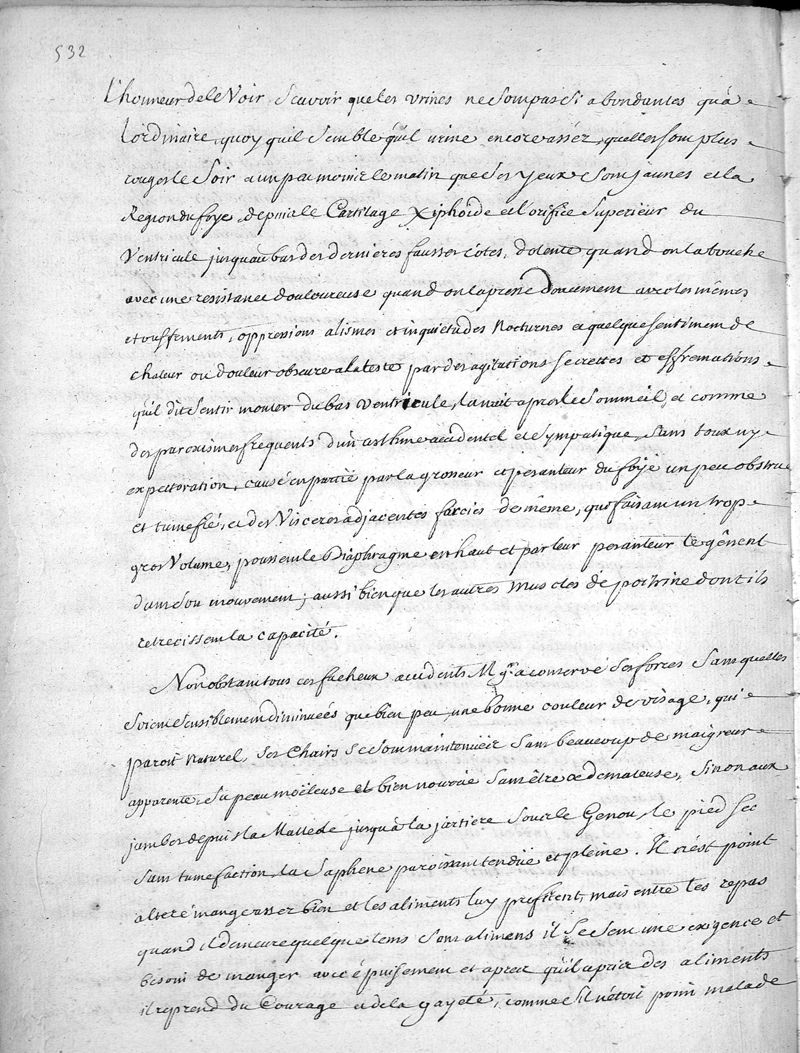 532
L'honneur de le Voir, Scavoir que les urines ne sont pas Si abondantes qu'à
L'ordinaire, quoy qu'il Semble qu'il urine encore assés, qu'elles sont plus
rouges le Soir et un peu moins le matin que Ses yeux Sont jaunes et la
Region du foye, depuis le Cartilage Xiphoïde et l'orifice Superieur du
Ventricule jusqu'au bas des dernieres fausses Côtes, dolente quand on la touche
avec une resistance douloureuse quand on la presse doucement avec les mêmes
etouffements, oppressions alismes et inquietudes Nocturnes et quelque sentiment de
chaleur ou douleur obscure a la teste par des agitations Secrettes et
qu'il dit Sentir monter du bas Ventricule, la nuit aprés le Sommeil, et comme
des paroxismes frequents d'un asthme accidentel et Sympatique, Sans toux ny
expectoration, causé en partie par la grosseur et pesanteur du foye un peu obstrué
et tumefié, et des Visceres adjacentes farcies de même, qui faisant un trop
gros Volume, poussent le Diaphragme en haut et par leur pesanteur le gênent
dans Son mouvement; aussi bien que les autres Muscles de poitrine dont ils
retrecissent la capacité.
Nonobstant tous ces facheux accidents Mgr. a conservé Ses forces Sans qu'elles
Soient Sensiblement diminuées que bien peu, une bonne couleur de visage, qui
paroit Naturel, Ses Chairs Se Sont maintenües Sans beaucoup de maigreur
apparente, Sa peau moëleuse et bien nourrie Sans être oedemateuse, Sinon aux
jambes depuis la Malleole jusqu'à la jartiere Sous le Genou, le pied Sec
Sans tumefaction, la Saphene paroissant tendüe et pleine. Il n'est point
alteré mange assez bien et les aliments luy profitent, mais entre les repas
quand il demeure quelque tems Sans alimens il Se Sent une exigence et
besoin de manger avec épuisement et aprez qu'il a pris des aliments
il reprend du Courage et de la gayeté, comme S'il n'étoit point malade